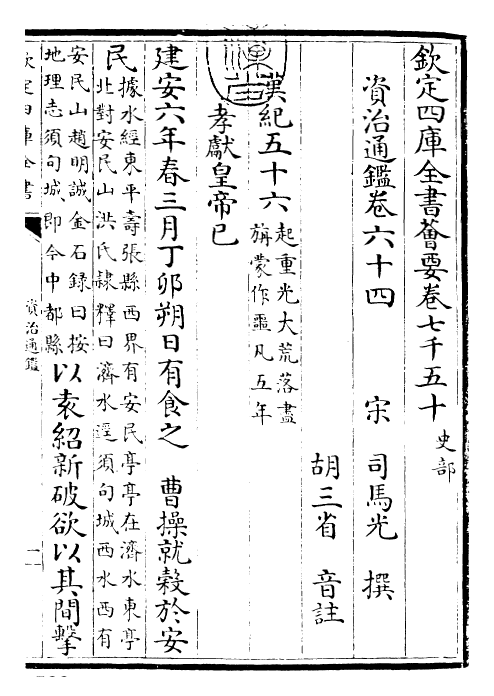 欽定四庫全書薈要卷七千五十 史部
資治通鑑卷六十四
宋 司馬光 撰
胡三省 音註
漢紀五十六 起重光大荒落盡
旃蒙作噩凡五年
孝獻皇帝己
建安六年春三月丁卯朔日有食之 曹操就穀於安
民 據水經東平壽張縣西界有安民亭亭在濟水東亭
北對安民山洪氏隸釋曰濟水逕須句城西水西有
安民山趙明誠金石録曰按
地理志須句城即今中都縣 以袁紹新破欲以其間擊
欽定四庫全書
資治通鑑
一